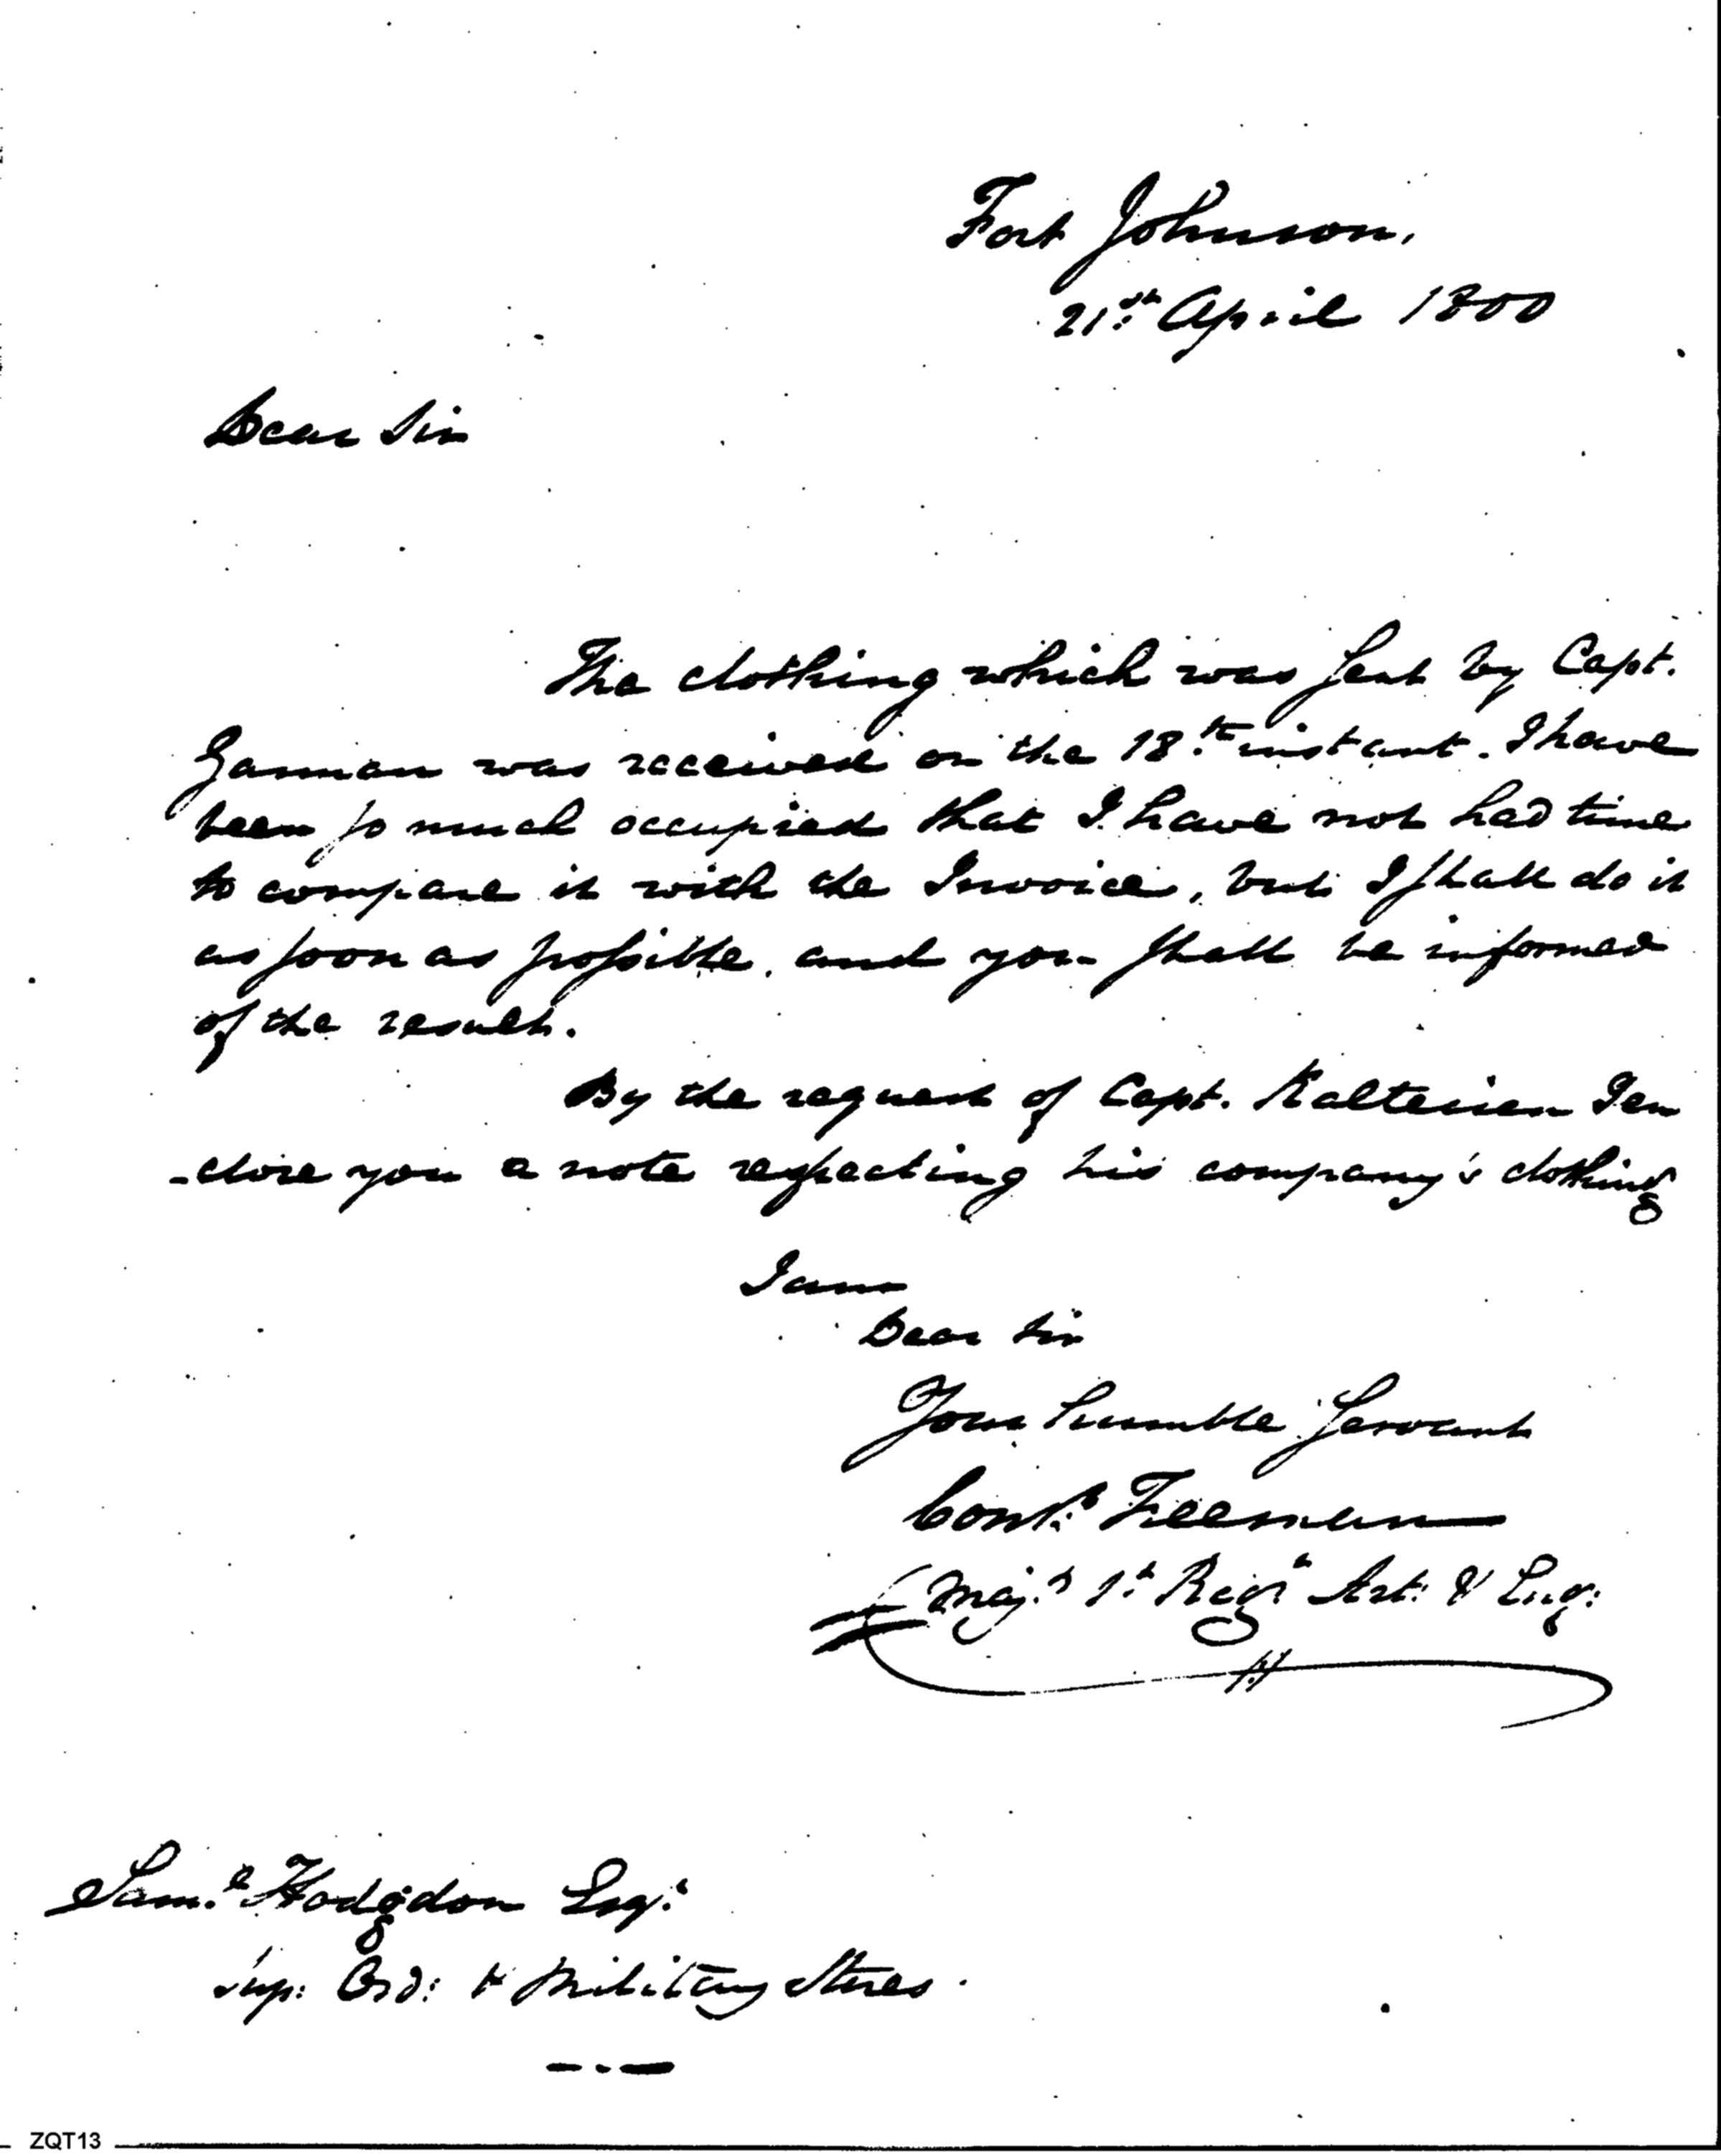 Fort Johnson,
21st April 1800
Dear Sir
The clothing which was sent by Capt.
was received on the 18th instant. I have
been so much occupied that I have not had time
to compare it with the Invoice, but I shall do it
as soon as possible, and you shall be informed
of the result.
By the request of Capt. Kalteisen I en
-close you a note respecting his company's clothing
I am
Dear Sir
Your humble Servant
Const. Freeman
Maj.r 1st Regt Art: & Eng:
Saml Hodgdon Esqr
Sup: Ord: & Military Stores.
ZQT13